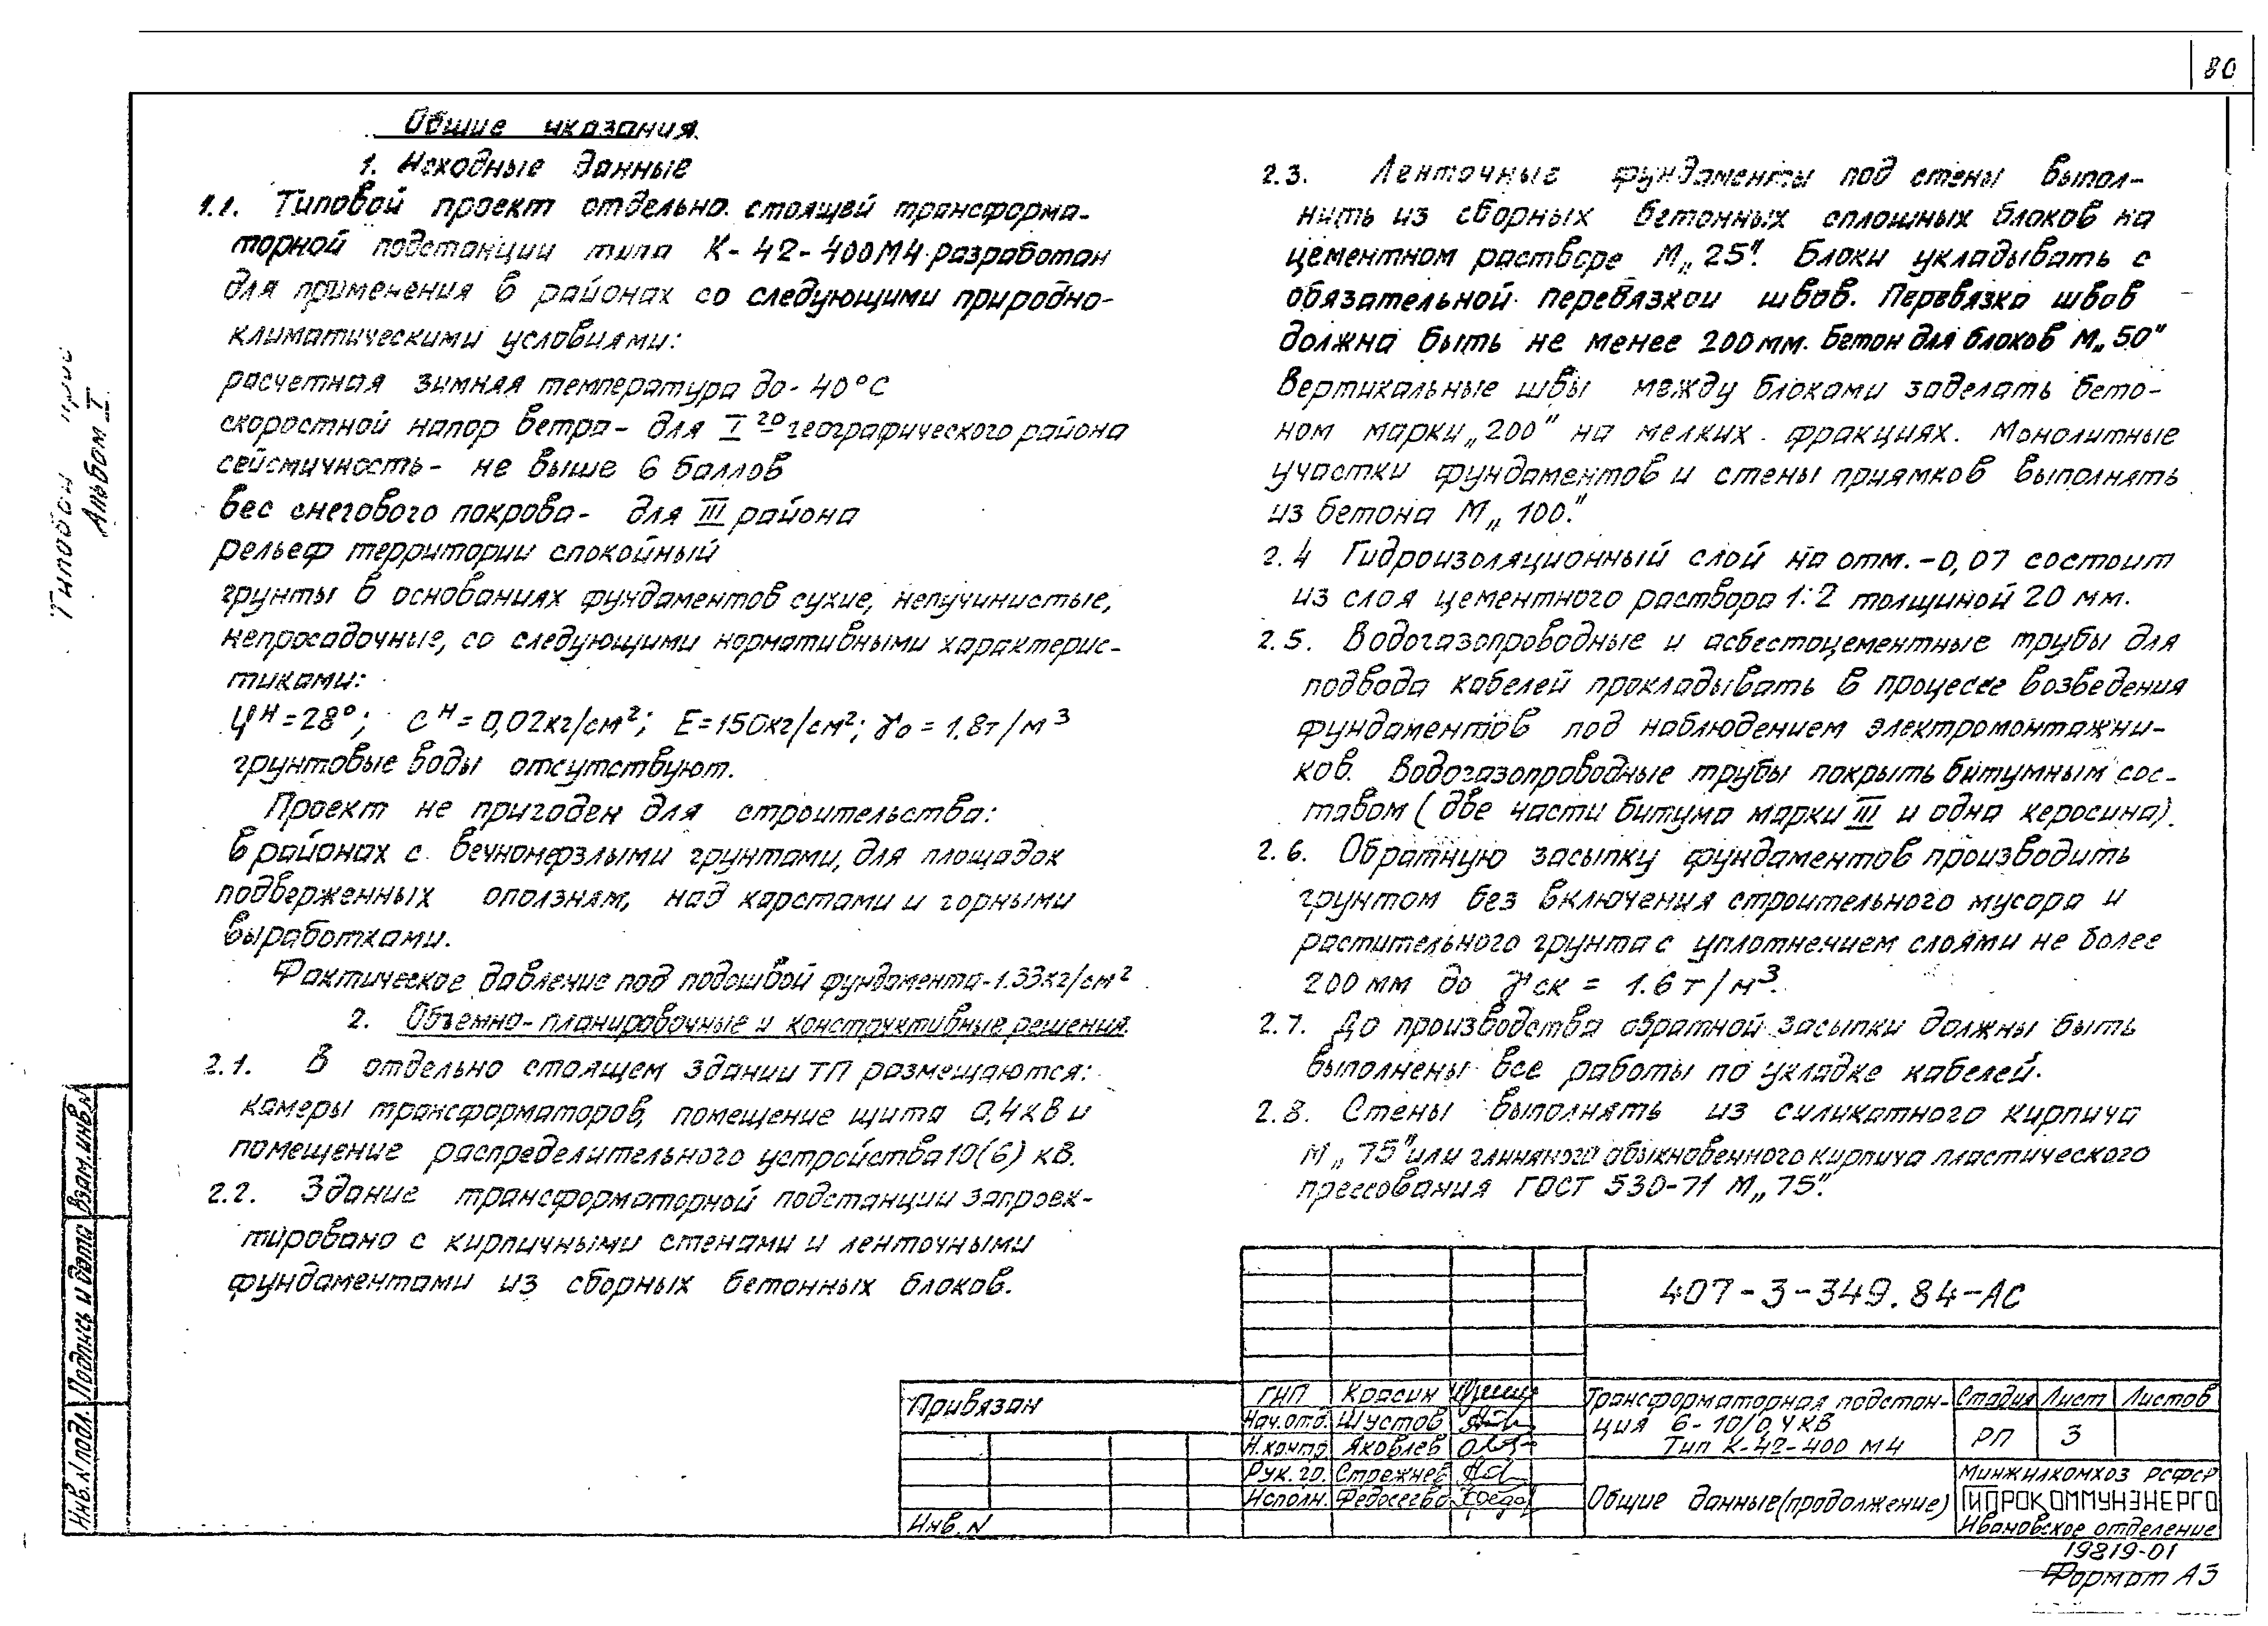 80
Общие указания.
1. Исходные данные
1.1. Типовой проект отдельно стоящей трансформа-
торной подстанции типа К-42-400М4 разработан
для применения в районах со следующими природно-
климатическими условиями:
расчетная зимняя температура до -40°С
скоростной напор ветра - для I го географического района
сейсмичность - не выше 6 баллов
вес снегового покрова - для III района
рельеф территории спокойный
грунты в основаниях фундаментов сухие, непучинистые,
непросадочные, со следующими нормативными характерис-
тиками:
φᴴ=28°; сᴴ=0,02кг/см²; Е=150кг/см²; γо=1.8т/м³
грунтовые воды отсутствуют.
Проект не пригоден для строительства:
в районах с вечномерзлыми грунтами, для площадок
подверженных оползням, над карстами и горными
выработками.
Фактическое давление под подошвой фундамента-1.33кг/см²
2. Объемно-планировочные и конструктивные решения.
2.1. В отдельно стоящем здании ТП размещаются:
камеры трансформаторов, помещение щита 0,4кВ и
помещение распределительного устройства 10(6) кВ.
2.2. Здание трансформаторной подстанции запроек-
тировано с кирпичными стенами и ленточными
фундаментами из сборных бетонных блоков.
2.3. Ленточные фундаменты под стены выпол-
нить из сборных бетонных сплошных блоков на
цементном растворе М„25". Блоки укладывать с
обязательной перевязкой швов. Перевязка швов
должна быть не менее 200мм. Бетон для блоков М„50"
Вертикальные швы между блоками заделать бето-
ном марки„200" на мелких фракциях. Монолитные
участки фундаментов и стены приямков выполнять
из бетона М„100."
2.4 Гидроизоляционный слой на отм. -0,07 состоит
из слоя цементного раствора 1:2 толщиной 20 мм.
2.5. Водогазопроводные и асбестоцементные трубы для
подвода кабелей прокладывать в процессе возведения
фундаментов под наблюдением электромонтажни-
ков. Водогазопроводные трубы покрыть битумным сос-
тавом (две части битума марки III и одна керосина).
2.6. Обратную засыпку фундаментов производить
грунтом без включения строительного мусора и
растительного грунта с уплотнением слоями не более
200 мм до γск = 1.6т/м³.
2.7. До производства обратной засыпки должны быть
выполнены все работы по укладке кабелей.
2.8. Стены выполнять из силикатного кирпича
М„75"или глиняного обыкновенного кирпича пластического
прессования ГОСТ 530-71 М„75".
Альбом I
Взам.инв.N
Подпись и дата
Инв.N подл.
407-3-349.84-АС
Привязан
Инв.N
ГИП Красин
Нач.отд. Шустов
Н.контр. Яковлев
Рук.гр. Стрежнев
Исполн. Федосеева
Трансформаторная подстан-
ция 6-10/0,4кВ
Тип К-42-400 М4
Стадия Лист Листов
РП 3
Общие данные(продолжение)
Минжилкомхоз РСФСР
ГИПРОКОММУНЭНЕРГО
Ивановское отделение
19819-01
Формат А3